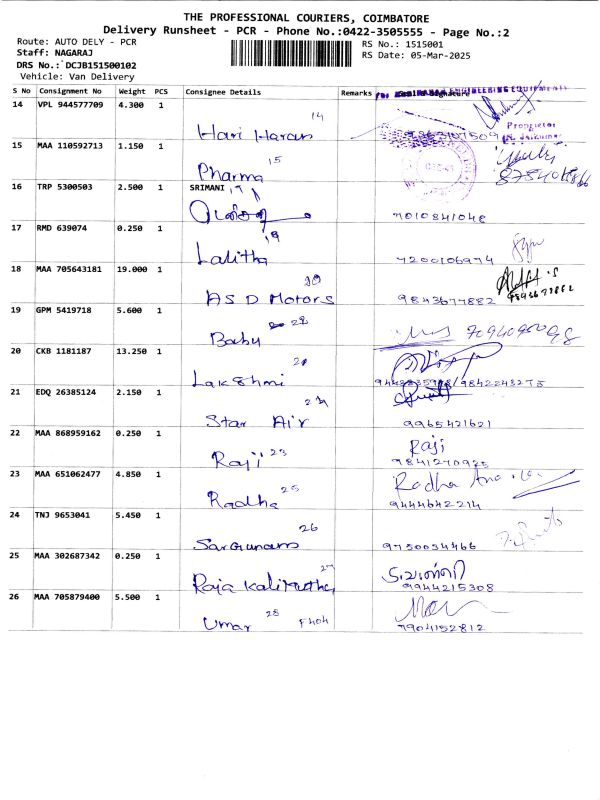 THE PROFESSIONAL COURIERS, COIMBATORE
Delivery Runsheet - PCR - Phone No.:0422-3505555 - Page No.:2
Route: AUTO DELY - PCR
Staff: NAGARAJ
DRS No.: DCJB151500102
Vehicle: Van Delivery
RS No.: 1515001
RS Date: 05-Mar-2025
S No Consignment No Weight PCS Consignee Details Remarks
14 VPL 944577709 4.300 1
14
Hari Haran
Proprietor
15 MAA 110592713 1.150 1
15
Pharma
16 TRP 5300503 2.500 1 SRIMANI
7010841048
17 RMD 639074 0.250 1
Lalitha 7200106974
18 MAA 705643181 19.000 1
20
ASD Motors 9843677882
9843677882
19 GPM 5419718 5.600 1
Babu
20 CKB 1181187 13.250 1
Lakshmi
21 EDQ 26385124 2.150 1
Star Air 9965421621
22 MAA 868959162 0.250 1
Raji 23 Raji
23 MAA 651062477 4.850 1
25
Radha Radha
9444642214
24 TNJ 9653041 5.450 1
26
Sargunam 9750034466
25 MAA 302687342 0.250 1
27
Raja Kalimuthu 9944215308
26 MAA 705879400 5.500 1
28
Umar 7904152812